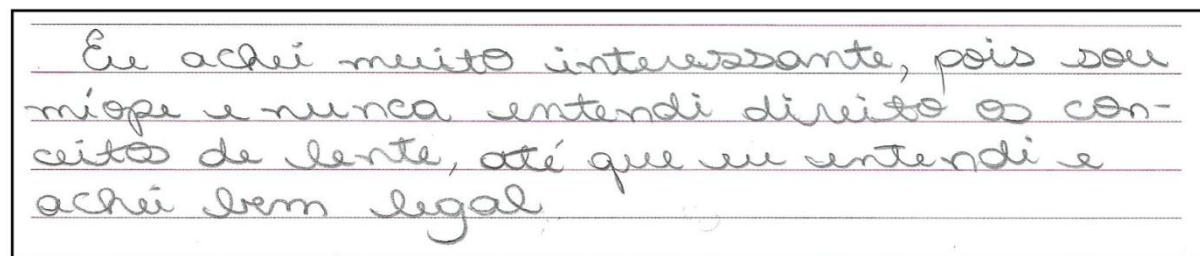 Eu achei muito interessante, pois sou
míope e nunca entendi direito os con-
ceitos de lente, até que eu entendi e
achei bem legal